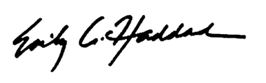 Emily A. Haddad